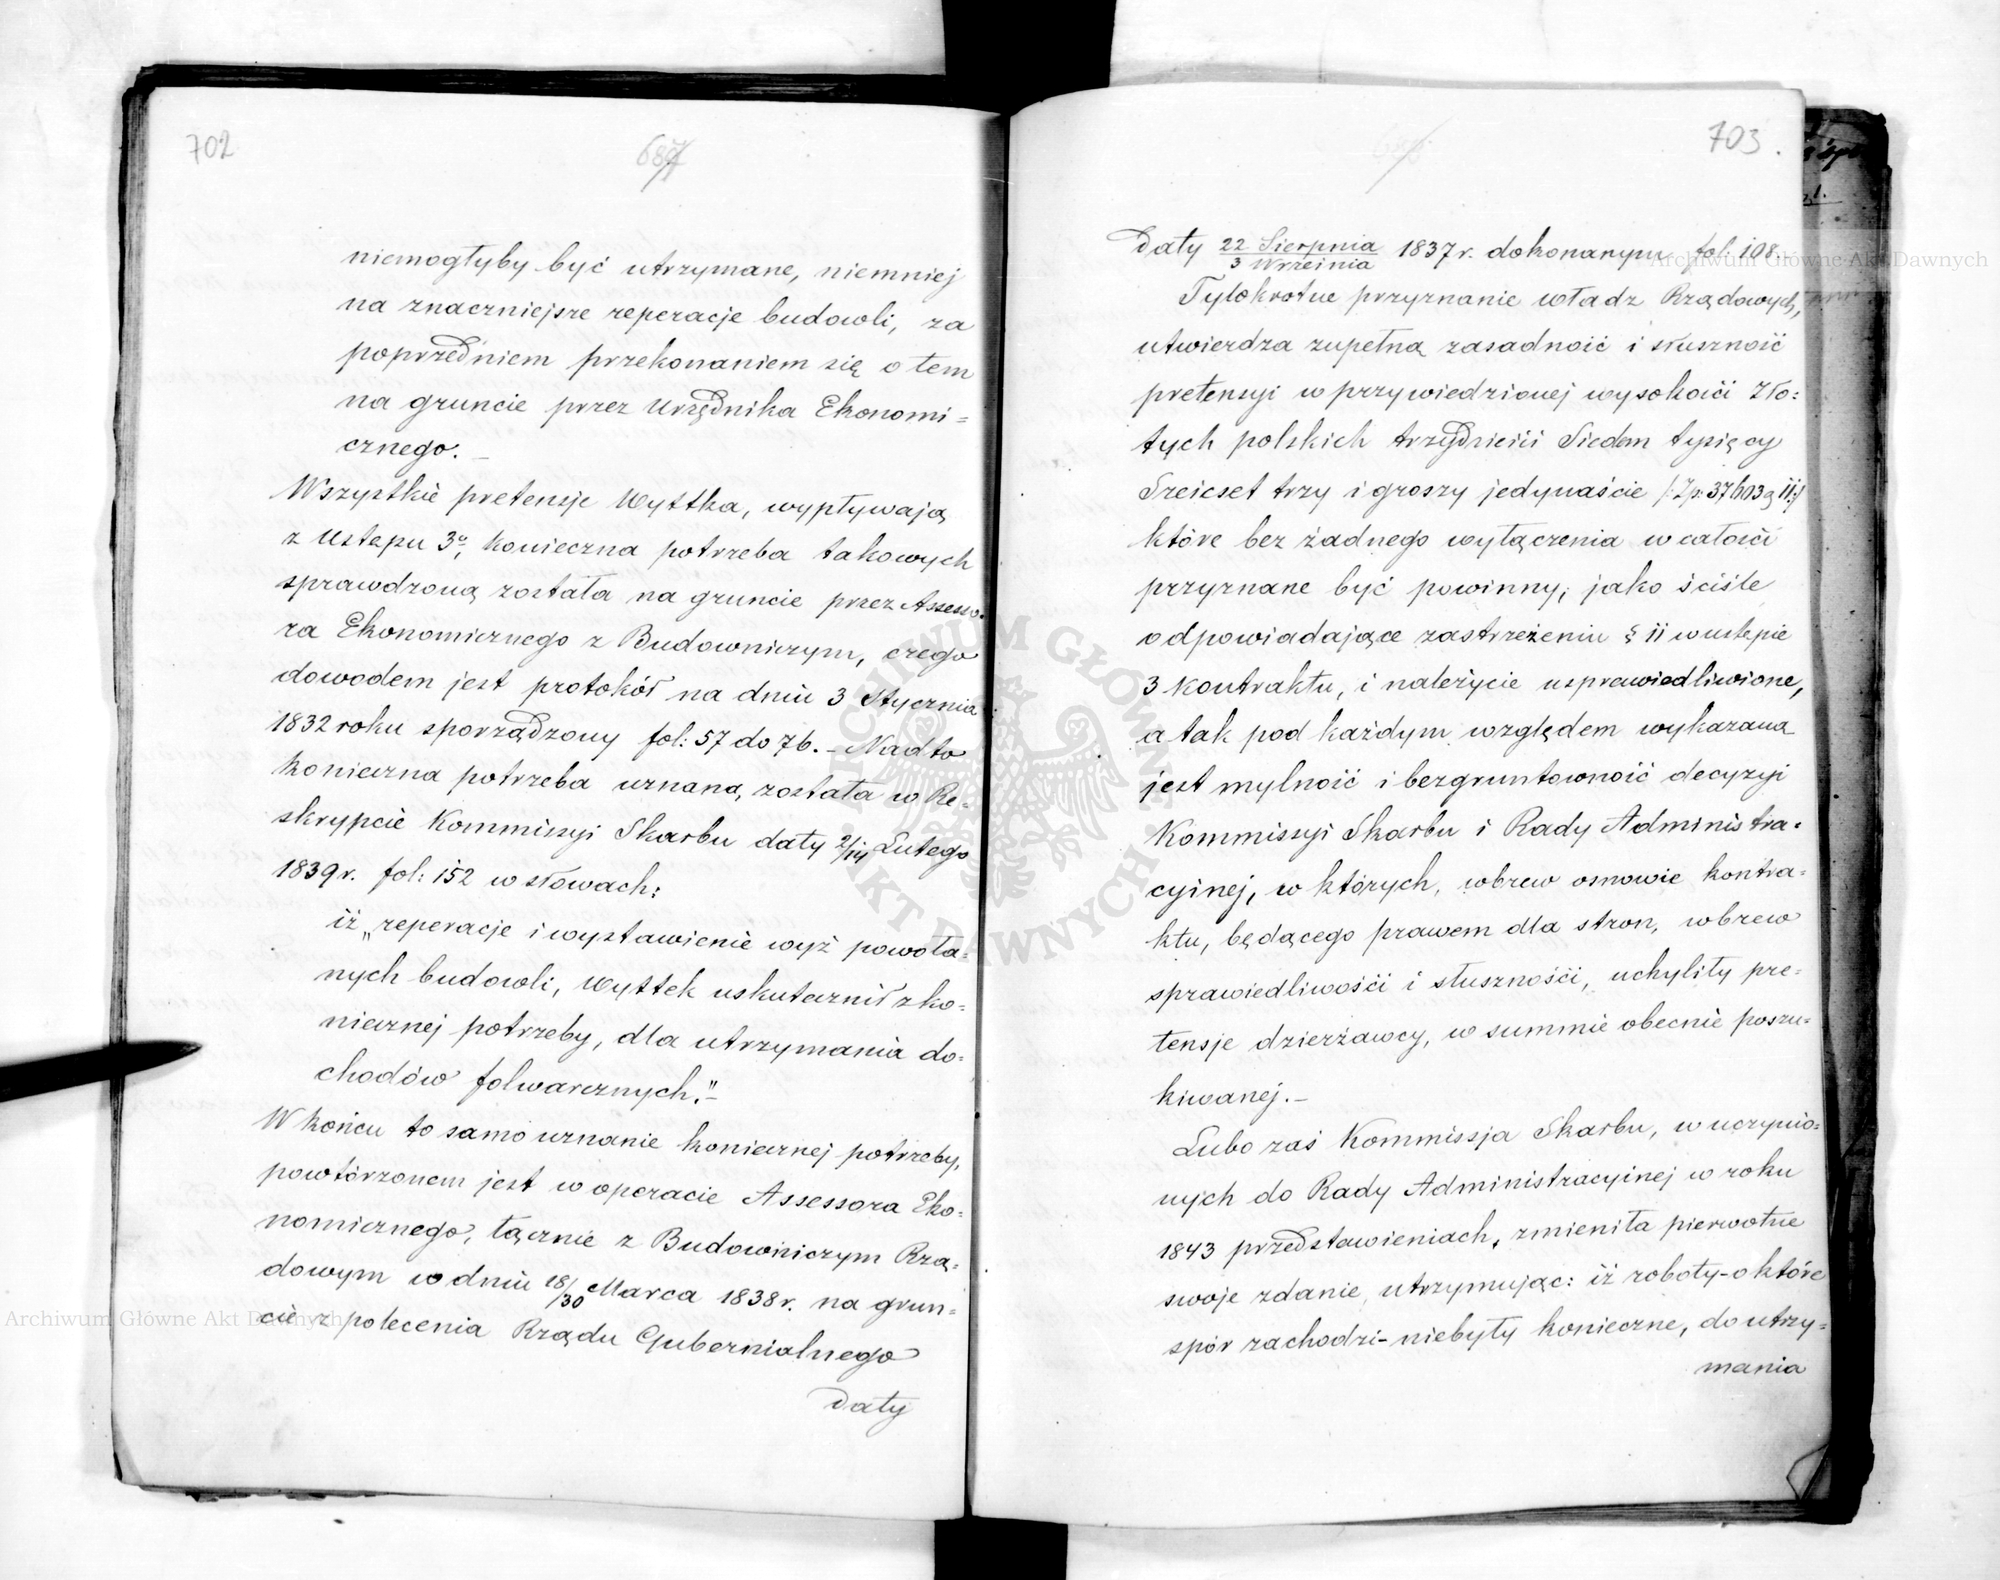 702
687
niemogłyby być utrzymane, niemniej
na znaczniejsze reperacje budowli, za
poprzedniem przekonaniem się o tem
na gruncie przez Urzędnika Ekonomi=
cznego. –
Wszystkie pretensje Wyttka, wypływają
z Ustępu 3o, konieczna potrzeba takowych
sprawdzoną została na gruncie przez Assesso-
ra Ekonomicznego z Budowniczym, czego
dowodem jest protokół na dniu 3 Stycznia
1832 roku sporządzony fol: 57 do 76. – Nadto
konieczna potrzeba uznaną została w Re=
skrypcie Kommissyi Skarbu daty 2/14 Lutego
1839 r. fol: 152 w słowach:
iż „reperacje i wystawienie wyż powoła=
nych budowli, Wyttek uskutecznił z ko=
niecznej potrzeby, dla utrzymania do=
chodów folwarcznych." –
W końcu to samo uznanie koniecznej potrzeby,
powtórzonem jest w operacie Assessora Eko=
nomicznego, łącznie z Budowniczym Rzą=
dowym w dniu 18/30 Marca 1838 r. na grun=
cie z polecenia Rządu Gubernialnego
Daty
703.
Daty 22 Sierpnia / 3 Września 1837 r. dokonanym fol: 108.
Tylokrotne przyznanie władz Rządowych,
utwierdza zupełną zasadność i słuszność
pretensyi w przywiedzionej wysokości Zło=
tych polskich trzydzieści Siedem tysięcy
Sześcset trzy i groszy jedynaście /: Zp: 37603 g 11:/
które bez żadnego wyłączenia w całości
przyznane być powinny, jako ściśle
odpowiadające zastrzeżeniu § 11 w ustępie
3 kontraktu, i należycie usprawiedliwione,
a tak pod każdym względem wykazaną
jest mylność i bezgruntowność decyzyi
Kommissyi Skarbu i Rady Administra=
cyjnej, w których, wbrew osnowie kontra=
ktu, będącego prawem dla stron, wbrew
sprawiedliwości i słuszności, uchyliły pre=
tensje dzierżawcy, w summie obecnie poszu=
kiwanej. –
Lubo zaś Kommissja Skarbu, w uczynio=
nych do Rady Administracyinej w roku
1843 przedstawieniach, zmieniła pierwotne
swoje zdanie, utrzymując: iż roboty – o które
spór zachodzi – niebyły konieczne, do utrzy=
mania
Archiwum Główne Akt Dawnych
Archiwum Główne Akt Dawnych
ARCHIWUM GŁÓWNE · AKT DAWNYCH ·